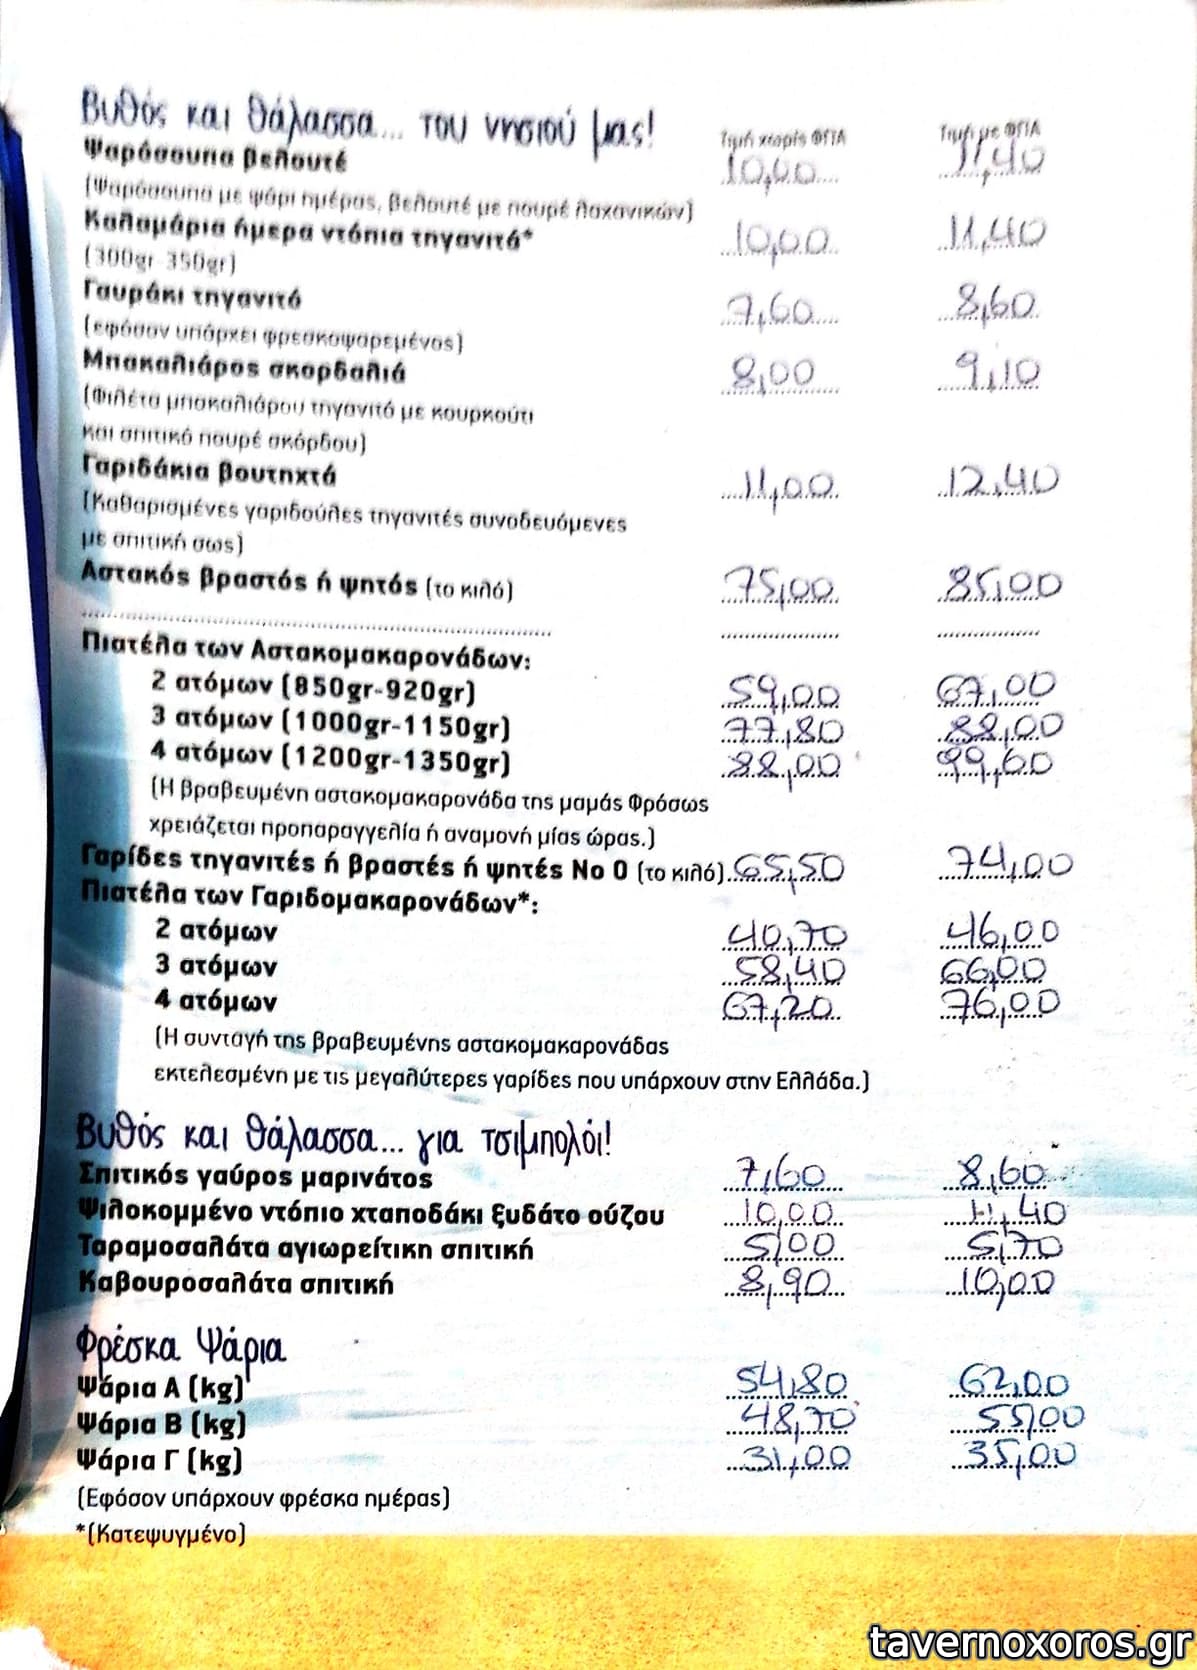 Βυθός και θάλασσα... του νησιού μας!
Τιμή χωρίς ΦΠΑ Τιμή με ΦΠΑ
Ψαρόσουπα βελουτέ 10,00 11,40
(Ψαρόσουπα με ψάρι ημέρας, βελουτέ με πουρέ λαχανικών)
Καλαμάρια ήμερα ντόπια τηγανιτά* 10,00 11,40
(300gr-350gr)
Γαυράκι τηγανιτό 7,60 8,60
(εφόσον υπάρχει φρεσκοψαρεμένος)
Μπακαλιάρος σκορδαλιά 8,00 9,10
(Φιλέτα μπακαλιάρου τηγανιτό με κουρκούτι
και σπιτικό πουρέ σκόρδου)
Γαριδάκια βουτηχτά 11,00 12,40
(Καθαρισμένες γαριδούλες τηγανιτές συνοδευόμενες
με σπιτική σως)
Αστακός βραστός ή ψητός (το κιλό) 75,00 85,00
Πιατέλα των Αστακομακαρονάδων:
2 ατόμων (850gr-920gr) 59,00 67,00
3 ατόμων (1000gr-1150gr) 77,80 88,00
4 ατόμων (1200gr-1350gr) 88,00 99,60
(Η βραβευμένη αστακομακαρονάδα της μαμάς Φρόσως
χρειάζεται προπαραγγελία ή αναμονή μίας ώρας.)
Γαρίδες τηγανιτές ή βραστές ή ψητές Νο 0 (το κιλό) 65,50 74,00
Πιατέλα των Γαριδομακαρονάδων*:
2 ατόμων 40,70 46,00
3 ατόμων 58,40 66,00
4 ατόμων 67,20 76,00
(Η συνταγή της βραβευμένης αστακομακαρονάδας
εκτελεσμένη με τις μεγαλύτερες γαρίδες που υπάρχουν στην Ελλάδα.)
Βυθός και θάλασσα... για τσιμπολόι!
Σπιτικός γαύρος μαρινάτος 7,60 8,60
Ψιλοκομμένο ντόπιο χταποδάκι ξυδάτο ούζου 10,00 11,40
Ταραμοσαλάτα αγιωρείτικη σπιτική 5,00 5,70
Καβουροσαλάτα σπιτική 8,90 10,00
Φρέσκα Ψάρια
Ψάρια Α (kg) 54,80 62,00
Ψάρια Β (kg) 48,70 55,00
Ψάρια Γ (kg) 31,00 35,00
(Εφόσον υπάρχουν φρέσκα ημέρας)
*(Κατεψυγμένο)
tavernoxoros.gr